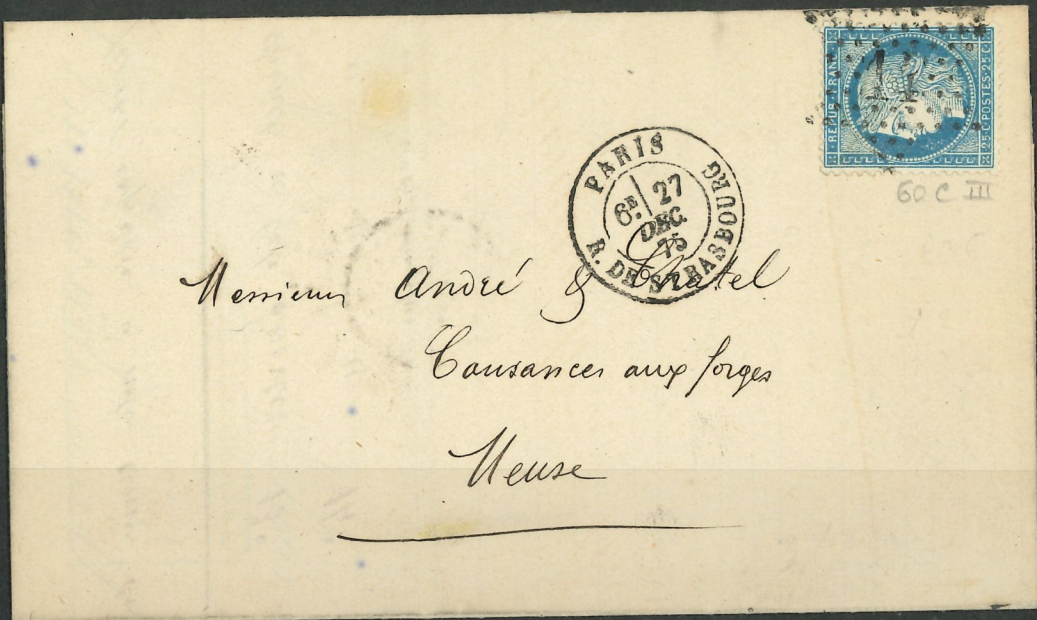 REPUB. FRANC.
25·C·POSTES·25·C
60 C III
PARIS
6E 27
DEC.
75
R. DE STRASBOURG
Messieurs André & Chatel
Cousances aux forges
Meuse